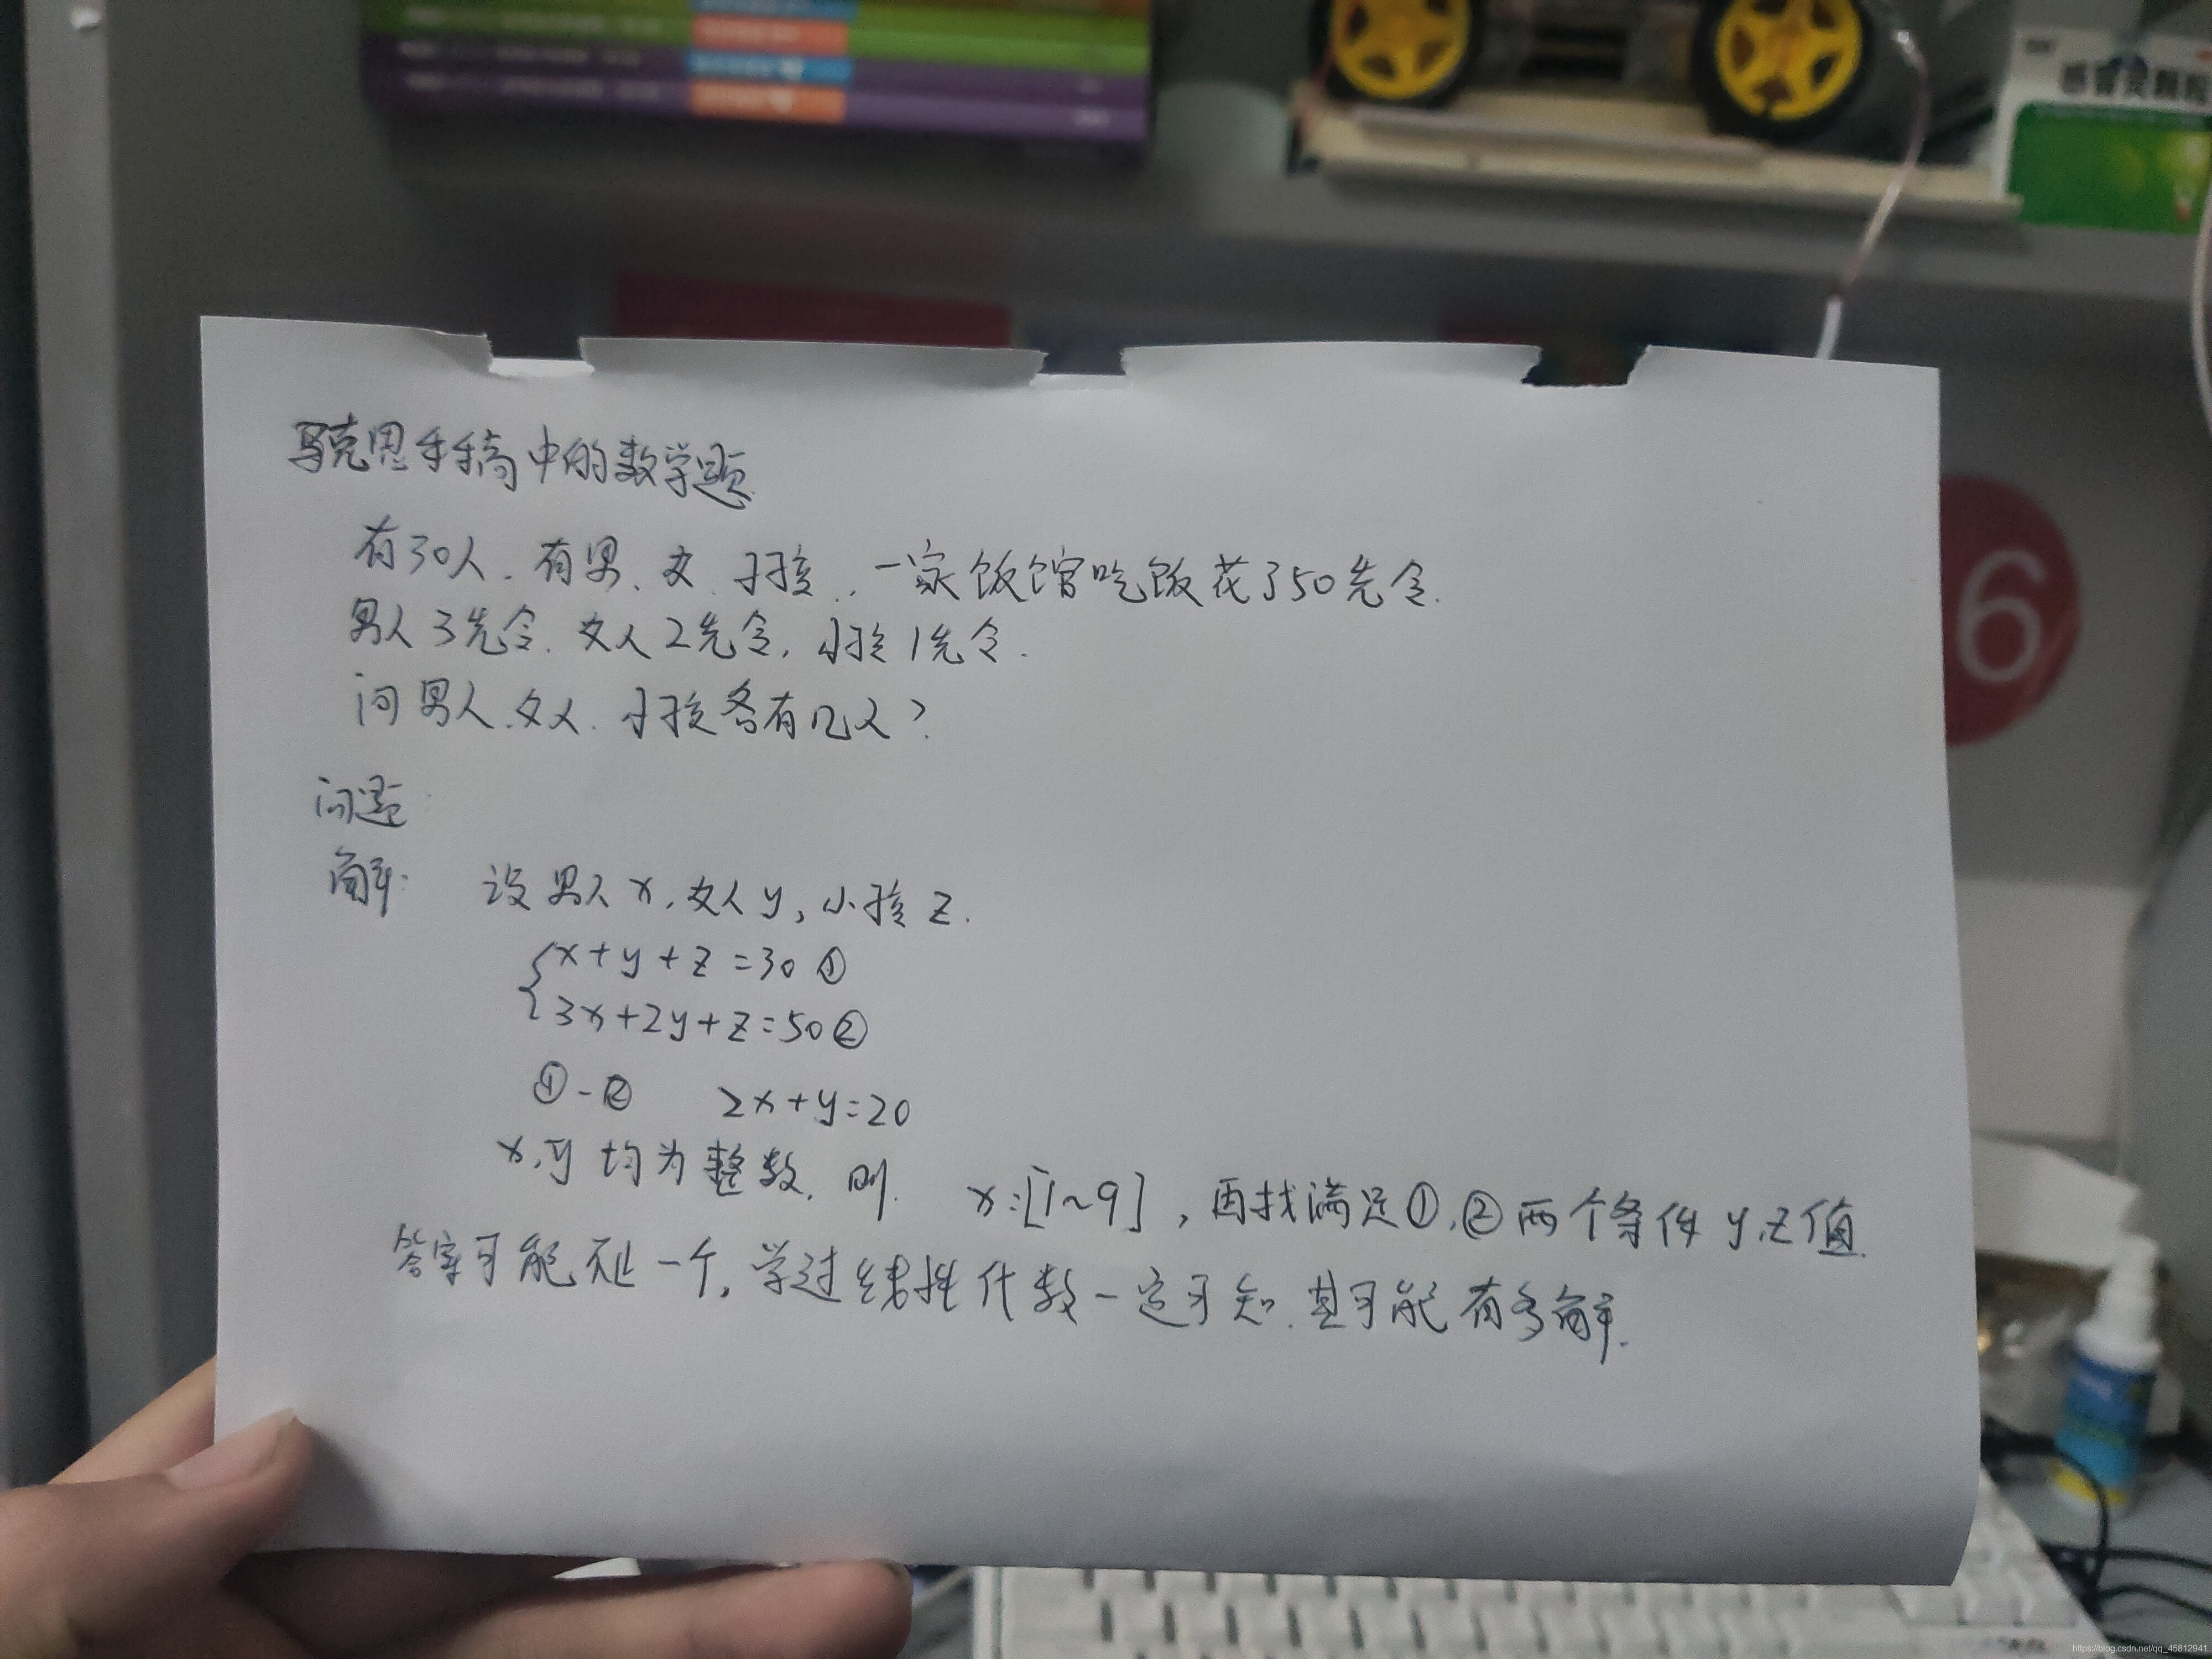 感冒灵颗粒
6
马克思手稿中的数学题
有30人. 有男、女、小孩.. 一家饭馆吃饭花了50先令.
男人3先令. 女人2先令, 小孩1先令.
问男人.女人. 小孩各有几人?
问题:
解: 设男人x, 女人y, 小孩z.
x+y+z=30①
3x+2y+z=50②
①-② 2x+y=20
x,y均为整数. 则. x:[1~9], 再找满足①,②两个条件y,z值.
答案可能不止一个, 学过线性代数一定可知. 其可能有多解.
https://blog.csdn.net/qq_45812941